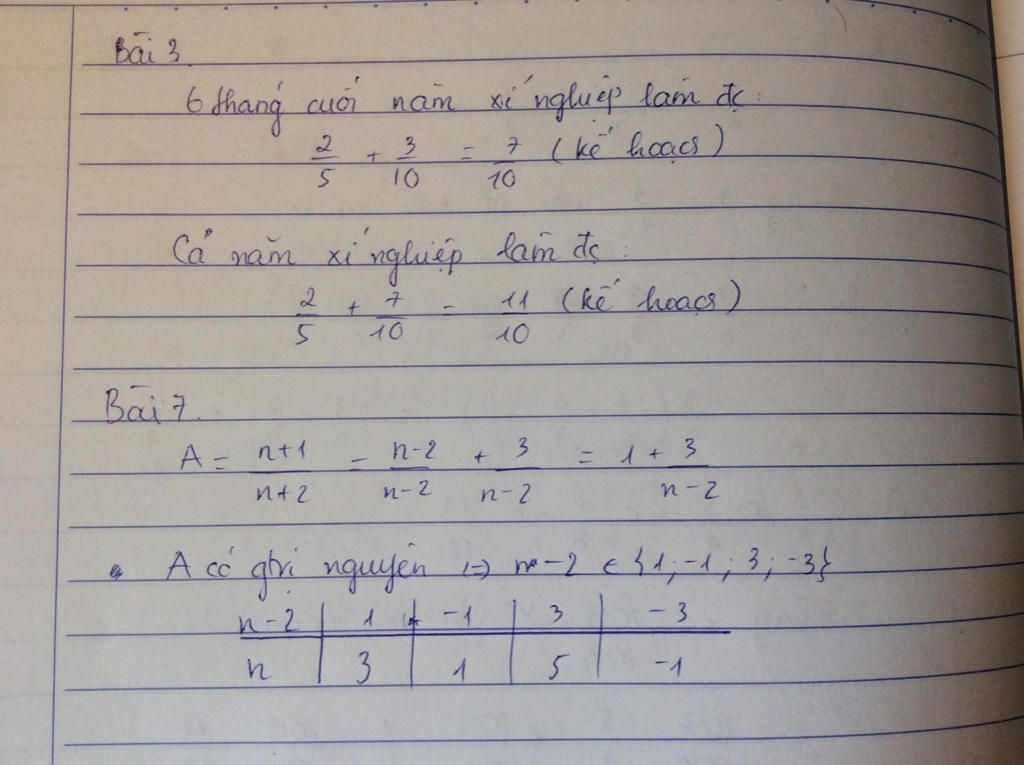 Bài 3.
6 tháng cuối năm xí nghiệp làm đc:
2/5 + 3/10 = 7/10 (kế hoạch)
Cả năm xí nghiệp làm đc:
2/5 + 7/10 = 11/10 (kế hoạch)
Bài 7.
A = n+1/n+2 = n-2/n-2 + 3/n-2 = 1 + 3/n-2
A có gtrị nguyên (=) n-2 ∈ {1; -1; 3; -3}
n-2 | 1 | -1 | 3 | -3
n | 3 | 1 | 5 | -1